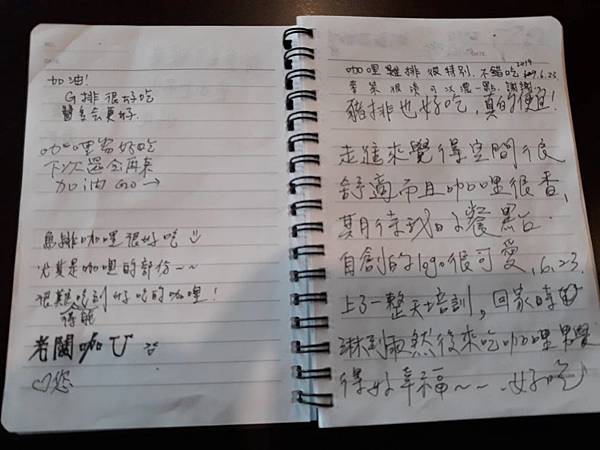 加油!
G排很好吃
醬會更好
咖哩蠻好吃
下次還會再來
加油GO→
魚排咖哩很好吃
尤其是咖哩的部份~~
很難吃到好吃的咖哩!
得能
老闆咖
♡您
DATE
咖哩雞排很特別.不錯吃 2019.6.23
辛菜很淡可以選一點.謝謝
豬排也好吃,真的便宜!
走進來覺得空間很
舒適而且咖哩很香,
期待我的餐點.
自創的logo很可愛.6.23.
上了一整天培訓,回家時
淋到雨然後來吃咖哩覺
得好幸福~~ 好吃♪